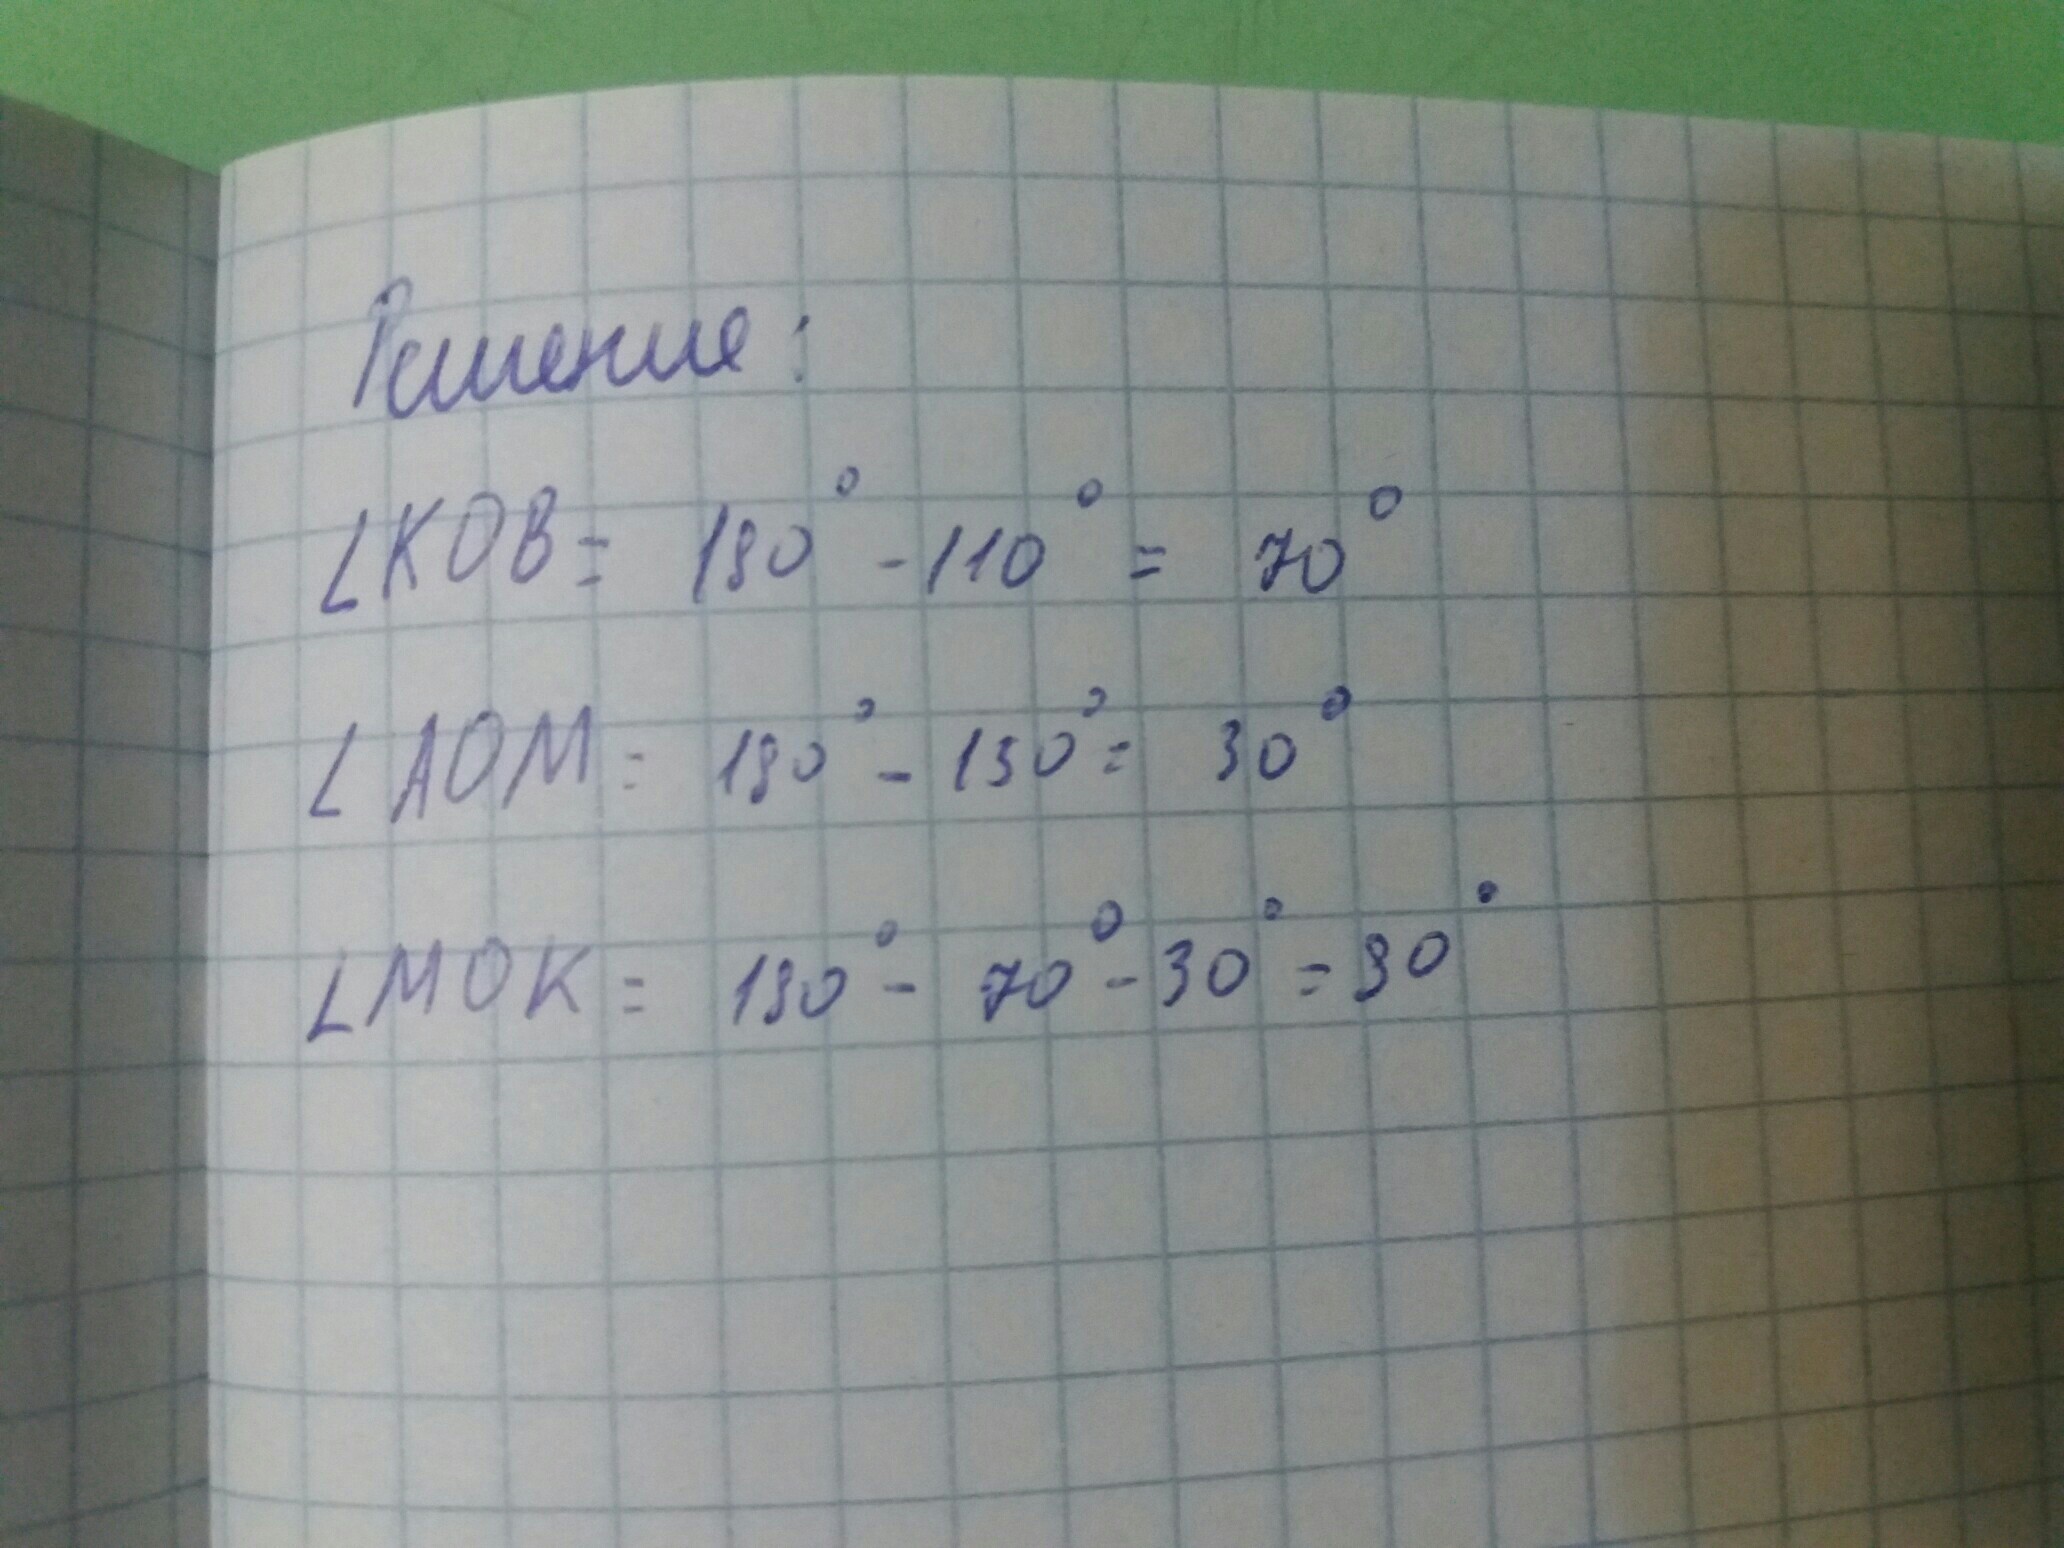 Решение:
∠KOB = 180° - 110° = 70°
∠AOM = 180° - 150° = 30°
∠MOK = 180° - 70° - 30° = 80°